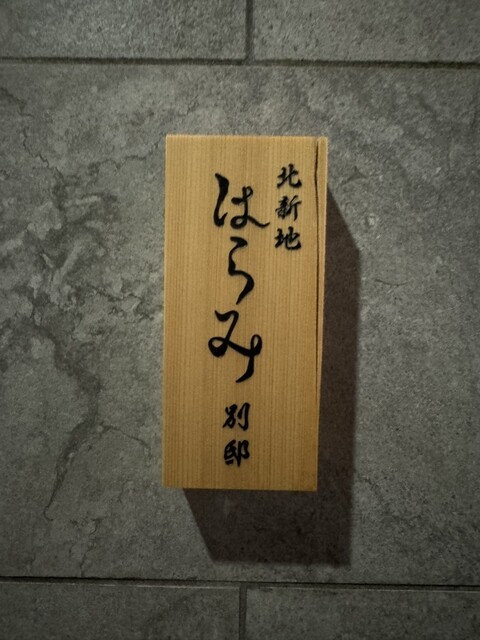 北新地
はらみ
別邸